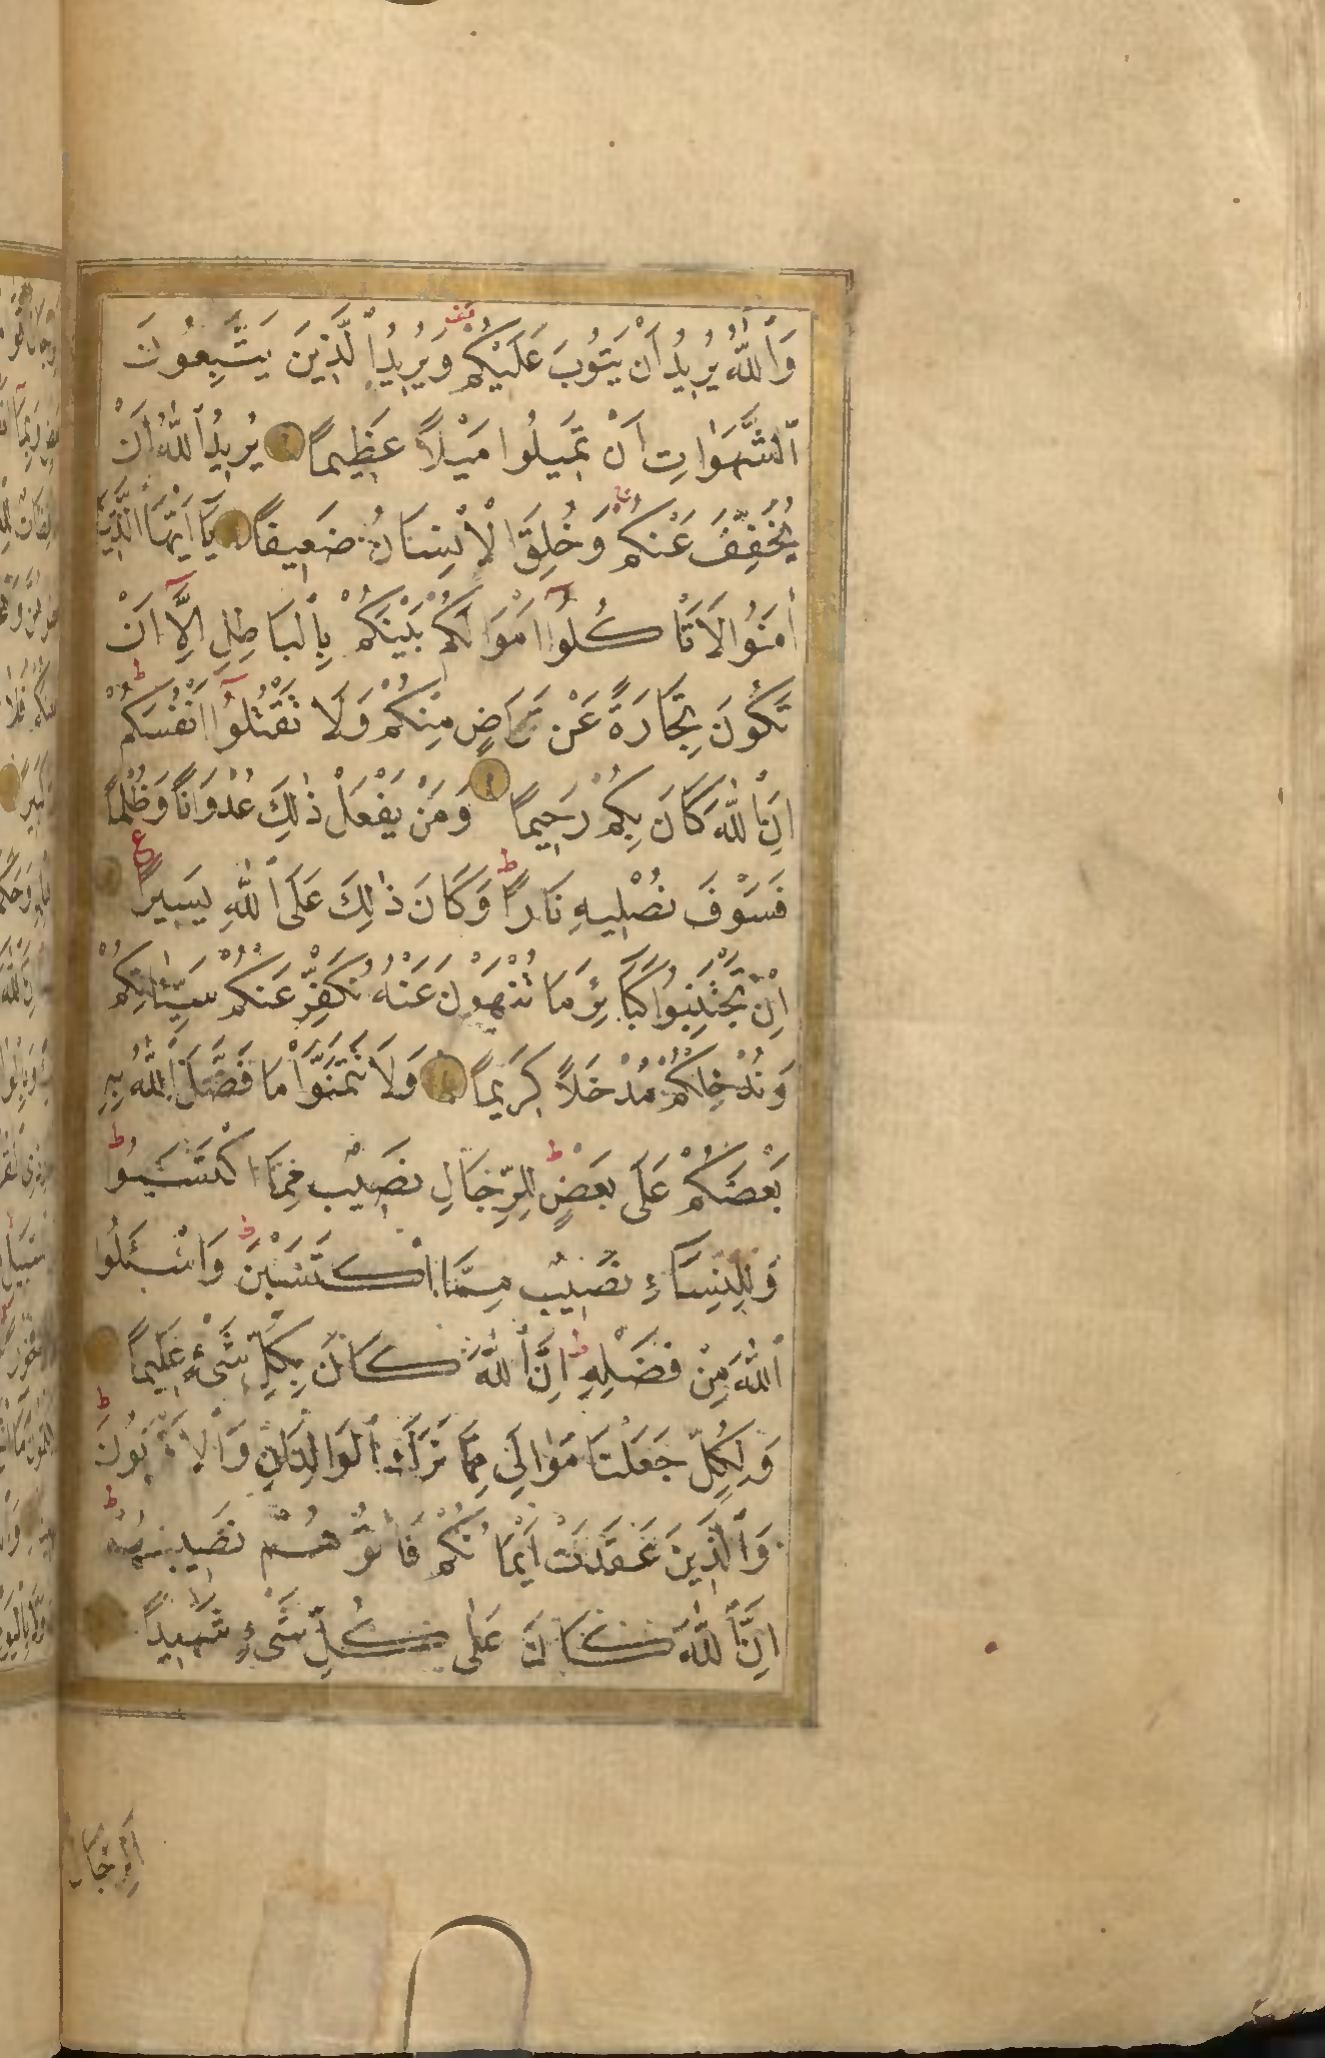 وَٱللّٰهُ يُرِيدُ أَنْ يَتُوبَ عَلَيْكُمْ وَيُرِيدُ ٱلَّذِينَ يَتَّبِعُونَ
ٱلشَّهَوَاتِ اَنْ تَمِيلُوا مَيْلاً عَظِيمًا يُرِيدُ ٱللّٰهُ اَنْ
يُخَفِّفَ عَنْكُمْ وَخُلِقَ الْاِنْسَانُ ضَعِيفًا يَآ اَيُّهَا الَّذِينَ
اٰمَنُوا لَا تَاْكُلُوٓا اَمْوَالَكُمْ بَيْنَكُمْ بِٱلْبَاطِلِ اِلَّٓا اَنْ
تَكُونَ تِجَارَةً عَنْ تَرَاضٍ مِنْكُمْ وَلَا تَقْتُلُوٓا اَنْفُسَكُمْ
اِنَّ ٱللّٰهَ كَانَ بِكُمْ رَحِيمًا وَمَنْ يَفْعَلْ ذٰلِكَ عُدْوَانًا وَظُلْمًا
فَسَوْفَ نُصْلِيهِ نَارًا وَكَانَ ذٰلِكَ عَلَى ٱللّٰهِ يَسِيرًا
اِنْ تَجْتَنِبُوا كَبَآئِرَ مَا تُنْهَوْنَ عَنْهُ نُكَفِّرْ عَنْكُمْ سَيِّئَاتِكُمْ
وَنُدْخِلْكُمْ مُدْخَلاً كَرِيمًا وَلَا تَتَمَنَّوْا مَا فَضَّلَ ٱللّٰهُ بِهِ
بَعْضَكُمْ عَلَى بَعْضٍ لِلرِّجَالِ نَصِيبٌ مِمَّا اكْتَسَبُوا
وَلِلنِّسَآءِ نَصِيبٌ مِمَّا اكْتَسَبْنَ وَاسْـَٔلُوا
ٱللّٰهَ مِنْ فَضْلِهِ اِنَّ ٱللّٰهَ كَانَ بِكُلِّ شَيْءٍ عَلِيمًا
وَلِكُلٍّ جَعَلْنَا مَوَالِيَ مِمَّا تَرَكَ ٱلْوَالِدَانِ وَٱلْاَقْرَبُونَ
وَٱلَّذِينَ عَقَدَتْ اَيْمَانُكُمْ فَاٰتُوهُمْ نَصِيبَهُمْ
اِنَّ ٱللّٰهَ كَانَ عَلٰى كُلِّ شَيْءٍ شَهِيدًا
اَلرِّجَالُ